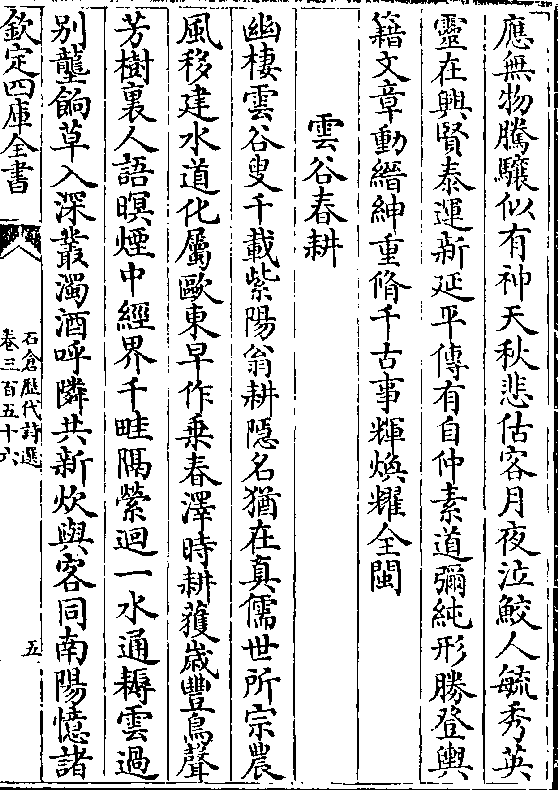 應無物騰驤似有神天秋悲估客月夜泣鮫人毓秀英
靈在興賢泰運新延平傳有自仲素道彌純形勝登輿
籍文章動縉紳重脩千古事輝煥耀全閩
雲谷春耕
幽棲雲谷叟千載紫陽翁耕隱名猶在真儒世所宗農
風移建水道化屬歐東早作乗春澤時耕獲嵗豐鳥聲
芳樹裏人語暝煙中經界千畦隔縈迴一水通耨雲過
别壟餉草入深叢濁酒呼隣共新炊與客同南陽憶諸
欽定四庫全書
石倉歴代詩選
卷三百五十六
五